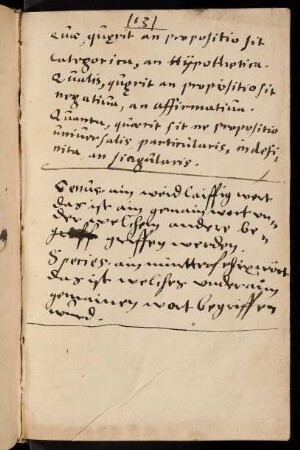 [13]
Quæ, quærit an propositio sit
categorica, an Hypothetica.
Qualis, quærit an propositio sit
negatiua, an affirmatiua.
Quanta, quærit sit ne propositio
uniuersalis, particularis, indefi-
nita an singularis.
Genus: ain weidlaiffig wort
das ist ain gemain wort un-
der welchem andere be-
griffen werden.
Species: ain
das ist welches under aim
gemainen wort begriffen
wurd.